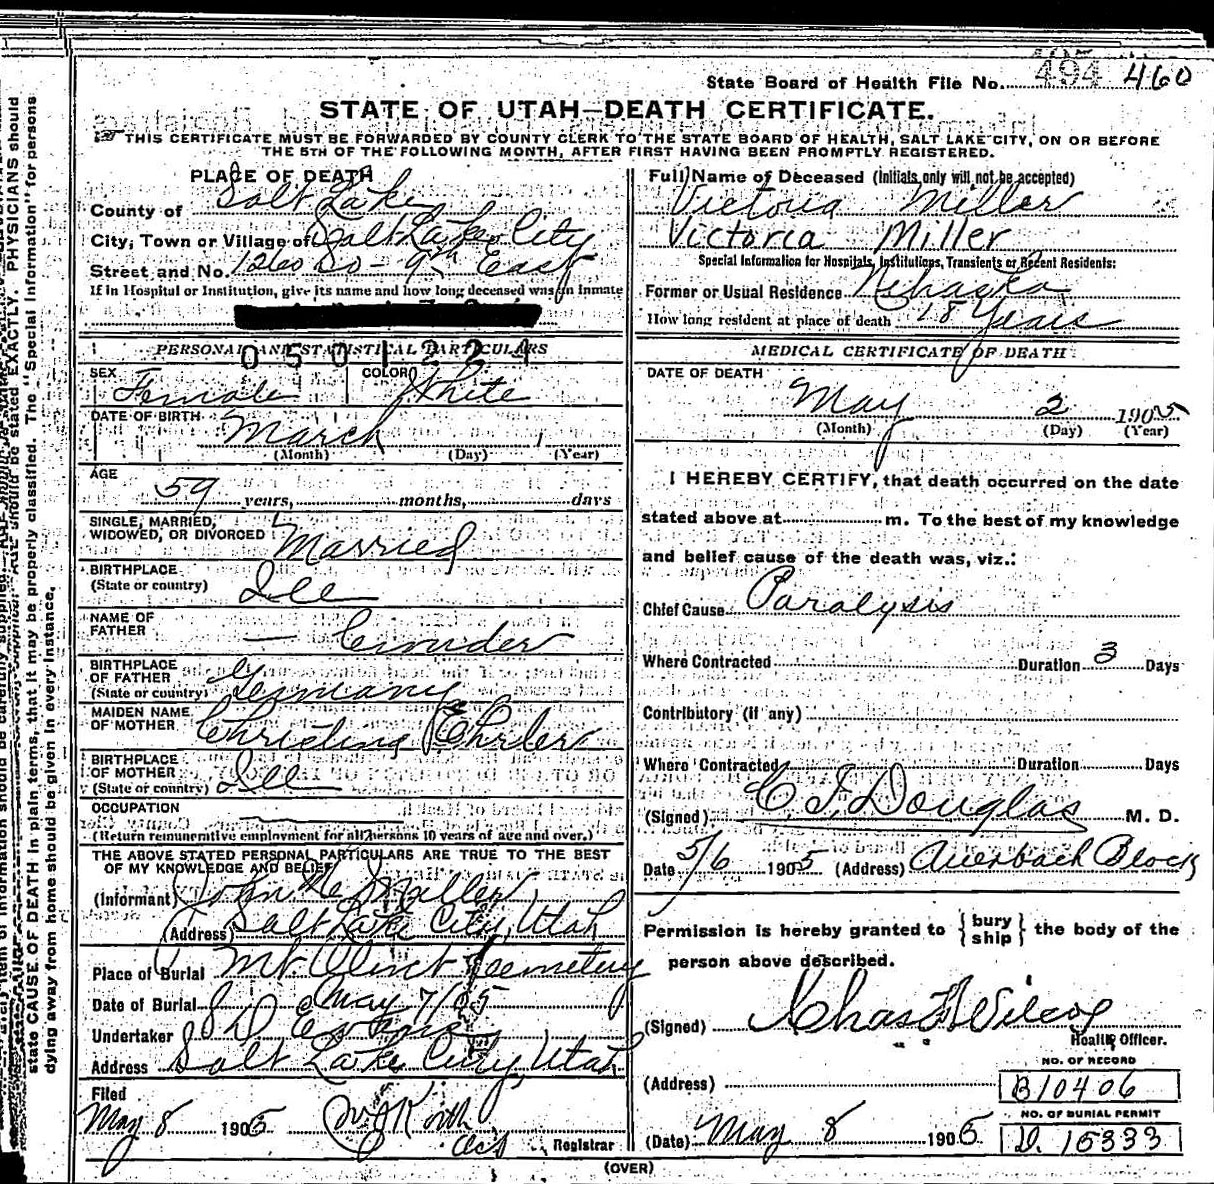 State Board of Health File No. 494 460
STATE OF UTAH—DEATH CERTIFICATE.
THIS CERTIFICATE MUST BE FORWARDED BY COUNTY CLERK TO THE STATE BOARD OF HEALTH, SALT LAKE CITY, ON OR BEFORE
THE 5TH OF THE FOLLOWING MONTH, AFTER FIRST HAVING BEEN PROMPTLY REGISTERED.
PLACE OF DEATH
County of Salt Lake
City, Town or Village of Salt Lake City
Street and No. 1260 So - 9th East
If in Hospital or Institution, give its name and how long deceased was an inmate
PERSONAL AND STATISTICAL PARTICULARS
0501221
SEX Female COLOR White
DATE OF BIRTH March
(Month) (Day) (Year)
AGE
59 years, months, days
SINGLE, MARRIED,
WIDOWED, OR DIVORCED Married
BIRTHPLACE
(State or country) Ill
NAME OF
FATHER —
BIRTHPLACE
OF FATHER
(State or country) Germany
MAIDEN NAME
OF MOTHER Christina Ehrler
BIRTHPLACE
OF MOTHER
(State or country) Ill
OCCUPATION
(Return remunerative employment for all persons 10 years of age and over.)
THE ABOVE STATED PERSONAL PARTICULARS ARE TRUE TO THE BEST
OF MY KNOWLEDGE AND BELIEF
(Informant) John Miller
(Address) Salt Lake City, Utah
Place of Burial Mt Olivet Cemetery
Date of Burial May 7/05
Undertaker S D Evans
Address Salt Lake City, Utah
Filed
May 8 1905
Registrar
Full Name of Deceased (Initials only will not be accepted)
Victoria Miller
Victoria Miller
Special Information for Hospitals, Institutions, Transients or Recent Residents:
Former or Usual Residence Nebraska
How long resident at place of death 18 Years
MEDICAL CERTIFICATE OF DEATH
DATE OF DEATH
May 2 1905
(Month) (Day) (Year)
I HEREBY CERTIFY, that death occurred on the date
stated above at m. To the best of my knowledge
and belief cause of the death was, viz.:
Chief Cause Paralysis
Where Contracted Duration 3 Days
Contributory (if any)
Where Contracted Duration Days
(Signed) C. F. Douglas M. D.
Date 5/6 1905 (Address) Auerbach Block
Permission is hereby granted to { bury ship } the body of the
person above described.
(Signed) Chas F Wilcox
Health Officer.
NO. OF RECORD
(Address) B10406
NO. OF BURIAL PERMIT
(Date) May 8 1905 D. 15333
(OVER)
state CAUSE OF DEATH in plain terms, that it may be properly classified. The "Special Information" for persons
dying away from home should be given in every instance.